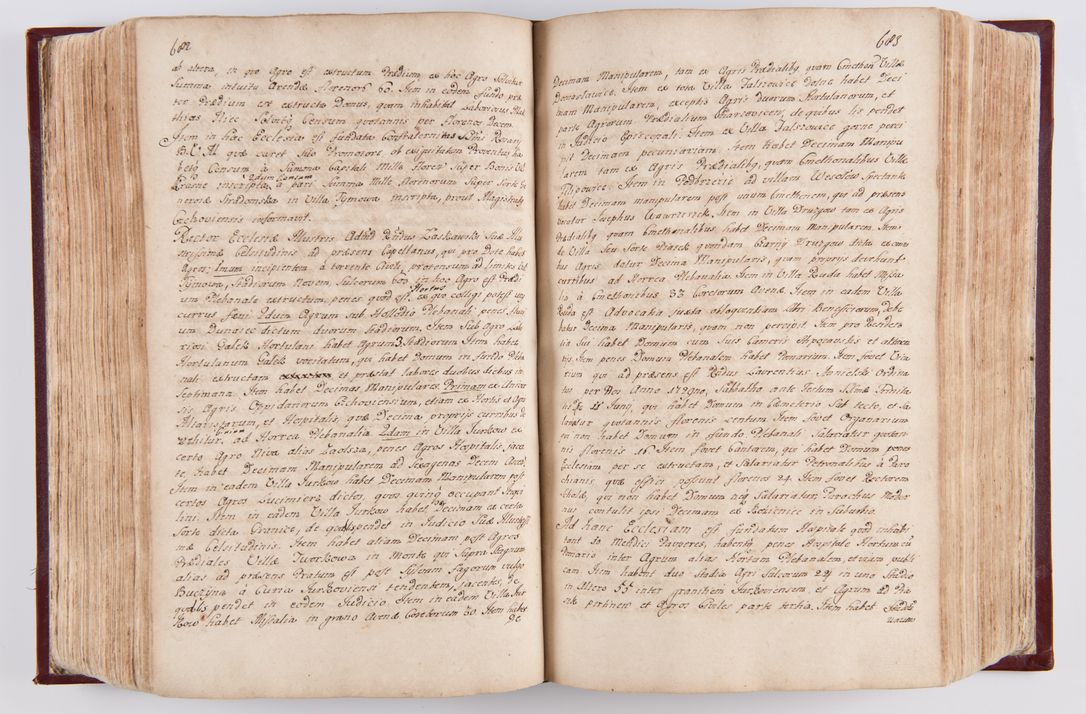 682
ab altera, in quo Agro est extructum Prædium, ex hoc Agro solvitur
Summa intuitu Arendæ florenorũ 60. Item in eodem fundo præ-
ter Prædium est extructa Domus, quam inhabitat Laboriosus Mat-
thias, Hic solvit Censum quotannis per florenos Decem
Item in hac Ecclesia est fundata Confraternitas SSmi Rosarij
B. V. M. quæ caret suo Promotore ob exiguitatem Proventus, ha-
bet Censum à Summa Capitali Mille floren: super Bonis
inscripta, 2dum Censum à pari Summa Mille florenorum super Sorte
Stradomska in Villa Tymowa inscripta, prout Magistratus
Czchoviensis informavit.
Rector Ecclesiæ Illustris Adm̃d Rñdus Laskawski Suæ Illu-
strissimæ Celsitudinis ad præsens Capellanus, qui pro Dote habet
Agrũ: Imum incipientem à torrente Civili protensum ad limites
Tymowa, Stadiorum Novem, Sulcorum 600 in hoc Agro est Prædi-
um Plebanale extructum, penes quod est Hortus ex quo colligi potest unus
currus fæni 2dum Agrum sub Hossodio Plebanali penes
um Dunaiec dictum duorum Stadiorum, Item sub Agro
Galek Hortulani habet Agrum 3 Stadiorum Item habet
Hortulanum Galek vocitatum, qui habet Domum in fundo Pleba-
nali extructam et præstat labores duobus diebus in
Septimana. Item habet Decimas Manipulares Primam ex Univer-
sis Agris Oppidanorum Czchoviensium, etiam ex Hortis et Agris
Altaristarum, et Hospitalis, quæ Decima proprijs curribus de-
vehitur, ad Horrea Plebanalia 2dam in Villa Jurkow ex
certo Agro Niva alias Zaolsza, penes Agros Hospitalis jacen-
te, habet Decimam Manipularem ad sexagenas Decem
Item in eadem Villa Jurkow habet Decimam Manipularem post
certos Agros Lucimiera dictos, quos quinq occupant
Item in eadem Villa Jurkow habet Decimam ex certa
Sorte dicta Cronice, de qua lis pendet in Judicio Suæ Illustrissi-
mæ Celsitudinis. Item habet aliam Decimam post Agros
Prædiales Villæ Tworkowa in Monte qui supra Stagnum
alias ad præsens Pratum est post Silvam Fagorum vulgo
Buczyna à Curia Jurkoviensi tendentem, jacentes, de
qua lis pendet in eodem Judicio Item in eadem Villa Jur-
kow habet Missalia in grano Avenæ Coretorum 30 Item habet
De
683
Decimam Manipularem, tam ex Agris Prædialibq, quam Cmethon: Villæ
Domoslawice. Item ex tota Villa Zalizowice Dolne habet Deci-
mam Manipularem, exceptis Agris Duorum Hortulanorum, et
parte Agrorum Prædialium Charzewicen: de quibus lis pendet
in Judicio Episcopali. Item ex Villa Faliszowice gorne perci-
pit Decimam pecuniariam. Item habet Decimam Manipu-
larem tam ex Agris Prædialibq, quam Cmethonalibus Villæ
Filipowice. Item in Podbrzezie ad villam Wesolow spectante
habet Decimam manipularem post unum Cmethonem, qui ad præsens
vocatur Josephus Wawrzenek, Item in Villa Druzgow tam ex Agris
Prædialibq quam Cmethonalibus habet Decimam Manipularem. Item
de Villa seu Sorte Piasek quondam Czarny Druzgow dicta ex omni-
bus Agris datur Decima Manipularis, quam proprijs devehunt
curribus ad Horrea Plebanalia Item in Villa Ruda habet Missa-
lia à Cmethonibus 33. Coretorum Avenæ Item in eadem Villa
Ruda est Advocatia juxta oblogentiam Libri Beneficiorum, debe-
batur Decima Manipularis, quam non percipit. Item pro Residen-
tia sui habet Domum cum suis Cameris Hypocaustis et
tis. Item penes Domum Plebanalem habet Pomarium. Item fovet Vica-
rium qui ad præsens est Rñdus Laurentius Anielski Ordina-
tus per Nos Anno 1729no, Sabbatho ante Festum SSmæ Trinita-
tis de 11 Junij, qui habet Domum in Cæmeterio sub tecto, et Sa-
lariatur quotannis florenis Centum Item fovet Organarium
qui non habet Domum in fundo Plebanali Salariatur quotan-
nis florenis 16 Item fovet Cantorem, qui habet Domum penes
Ecclesiam per se extructam, et Salariatur Petronalibus à Paro-
chianis, quæ effici possunt florenos 24. Item fovet Rectorem
Scholæ, qui non habet Domum neq Salariatur, Parochus Modter-
nus contulit ipsi Decimam ex Rzezienice in Suburbio.
Ad hanc Ecclesiam est fundatum Hospitale quod inhabi-
tant 10 Mendici Pauperes, habentq penes Hospitale Hortum cũ
Pomario inter Agrum alias Hortum Plebanalem, et viam publi-
cam Item habent duo Stadia Agri Sulcorum 224 in uno Stadio
in altero 55 inter granitiem Jurkoviensem, et Agrum ad
pertinen: et Agros Civiles parte tertia, Item habet Stadiũ
unum